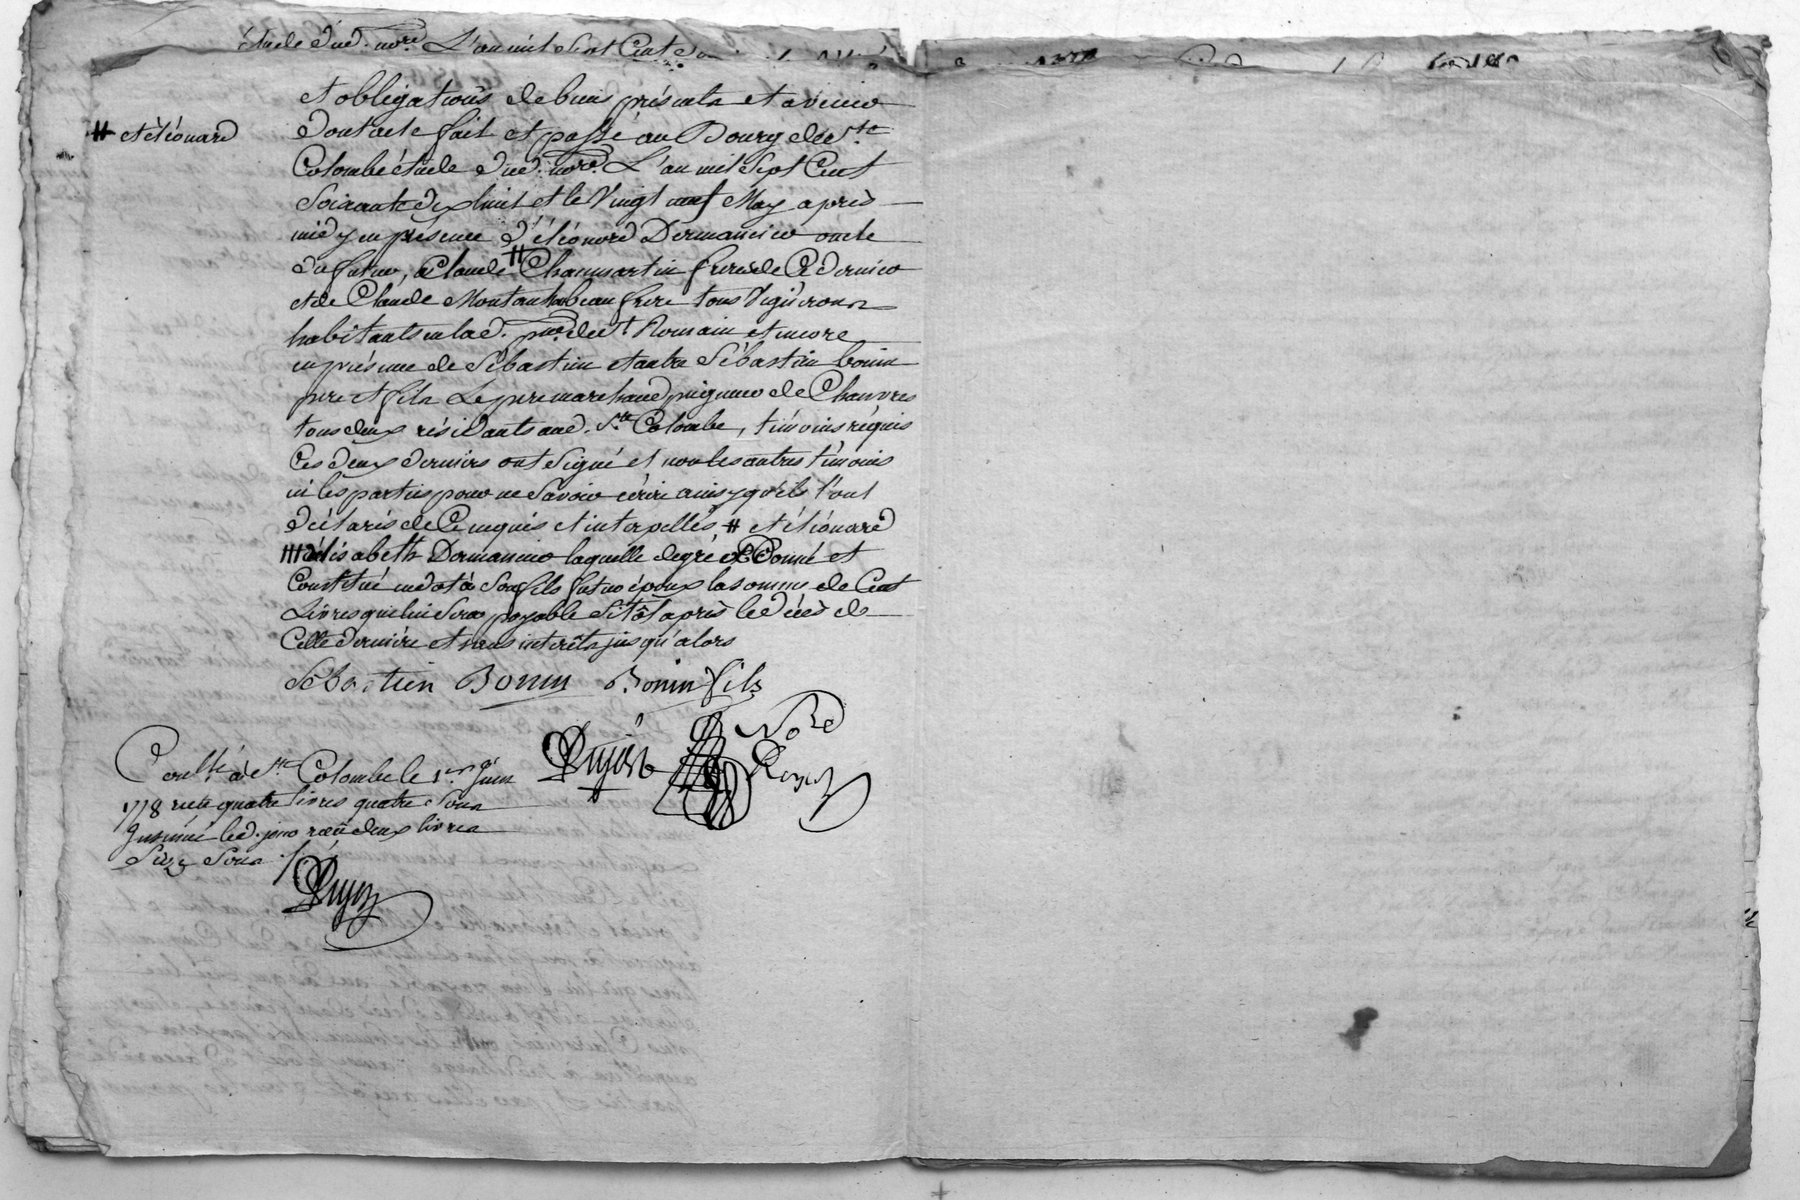 étude dud. nore. L'an mil Sept Cent
et obligations de biens présents et avenir
dont acte fait et passé au Bourg de Ste
Colombe étude dud. nore. L'an mil Sept Cent
Soixante dix huit et le Vingt neuf May après
midy en présence d'éléonord Dermancier oncle
du futur, à Claude # Chammartin frere de Ce dernier
et de Claude beau frere tous Vignerons
habitants en lad. psse. de St. Romain et encore
en présence de Sébastien et autre Sébastien bonin
pere et fils Le pere marchand peigneur de Chanvres
tous deux résidants aud. Ste. Colombe, témoins réquis
Ces deux derniers ont Signé et non les autres témoins
ni les parties pour ne Savoir écrire ainsy qu'ils l'ont
déclarés de Ce enquis et interpellés # et éléonard
élisabeth Dermancier laquelle de gré a Donné et
Constitué en dot à Son fils futur époux la somme de Cent
Livres qui lui Sera payable Sitôt après le décès de
Cette derniére et sans intérêts jusqu'alors
# et éléonard
Sébastien Bonin Bonin fils
Dujast Nore
Royal
Conllé à Ste Colombe le 1er. Juin
1778 reçu quatre livres quatre Sous
Insinué led. jour reçu deux livres
Seize Sous